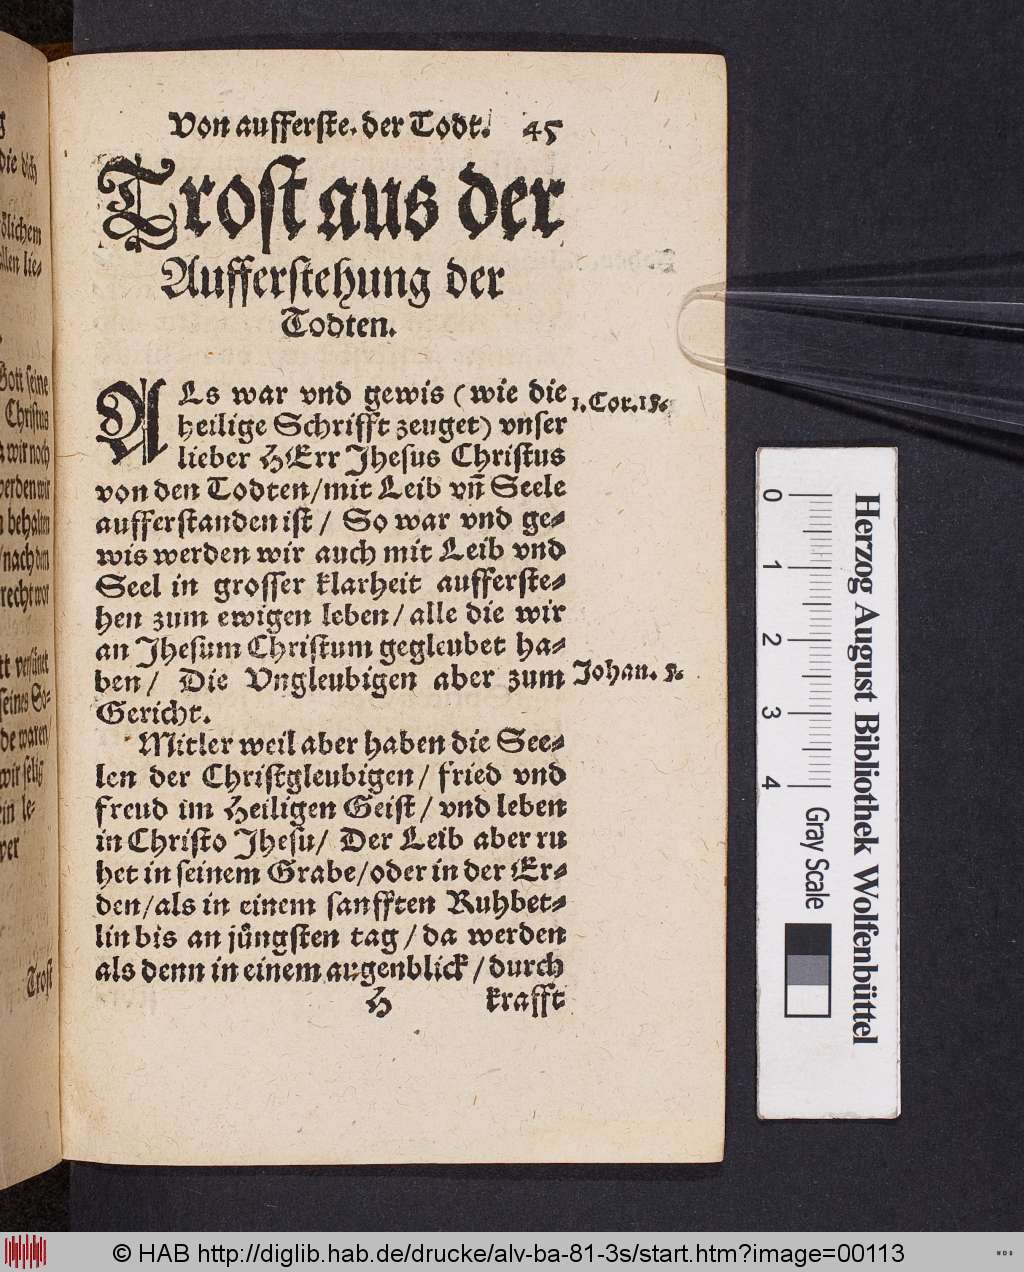 Von aufferste. der Todt. 45
Trost aus der
Aufferstehung der
Todten.
ALs war vnd gewis (wie die
heilige Schrifft zeuget) vnser
lieber HErr Jhesus Christus
von den Todten/mit Leib vn̄ Seele
aufferstanden ist/ So war vnd ge-
wis werden wir auch mit Leib vnd
Seel in grosser klarheit aufferste-
hen zum ewigen leben/ alle die wir
an Jhesum Christum gegleubet ha-
ben/ Die Vngleubigen aber zum
Gericht.
1. Cor. 15.
Johan. 5.
Mitler weil aber haben die See-
len der Christgleubigen/ fried vnd
freud im Heiligen Geist/ vnd leben
in Christo Jhesu/ Der Leib aber ru
het in seinem Grabe/oder in der Er-
den/als in einem sanfften Ruhbet-
lin bis an jüngsten tag/ da werden
als denn in einem augenblick/ durch
H krafft
die dich
lichem
allen lie-
Gott seine
Christus
wir noch
werden wir
behalten
/nach dem
recht
seines So-
de waren/
wir selig
le-
Trost
Herzog August Bibliothek Wolfenbüttel
0 1 2 3 4
Gray Scale
© HAB http://diglib.hab.de/drucke/alv-ba-81-3s/start.htm?image=00113